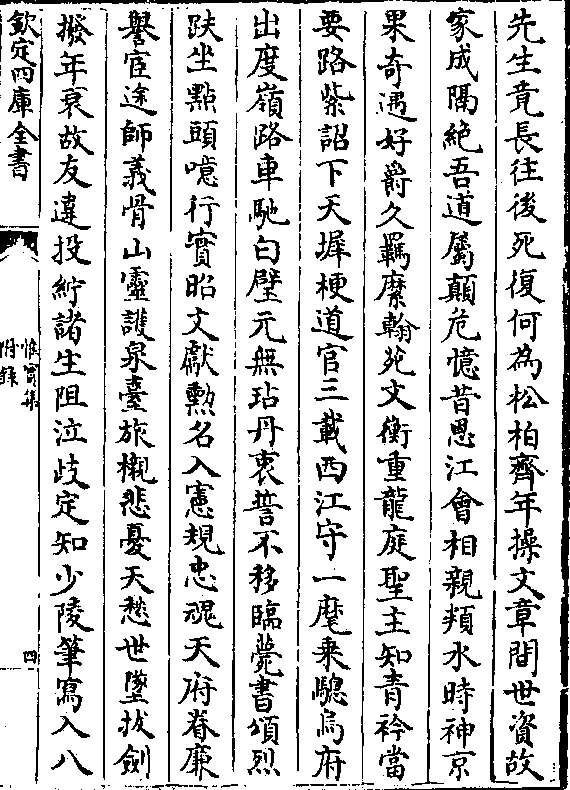 先生竟長往後死復何為松柏齊年操文章間世資故
家成隔絶吾道屬顛危憶昔恩江會相親類水時神京
果奇遇好爵久羈縻翰苑文衡重龍庭聖主知青衿當
要路紫詔下天墀梗道官三載西江守一麾乘驄烏府
出度嶺路車馳白璧元無玷丹衷誓不移臨薨書頌烈
趺坐點頭噫行實昭文獻勲名入憲規忠魂天府眷廉
譽宦途師義骨山靈護泉臺旅櫬悲憂天愁世墜拔劍
撥年衰故友違投紵諸生阻泣歧定知少陵筆寫入八
欽定四庫全書
惟實集
附錄
四